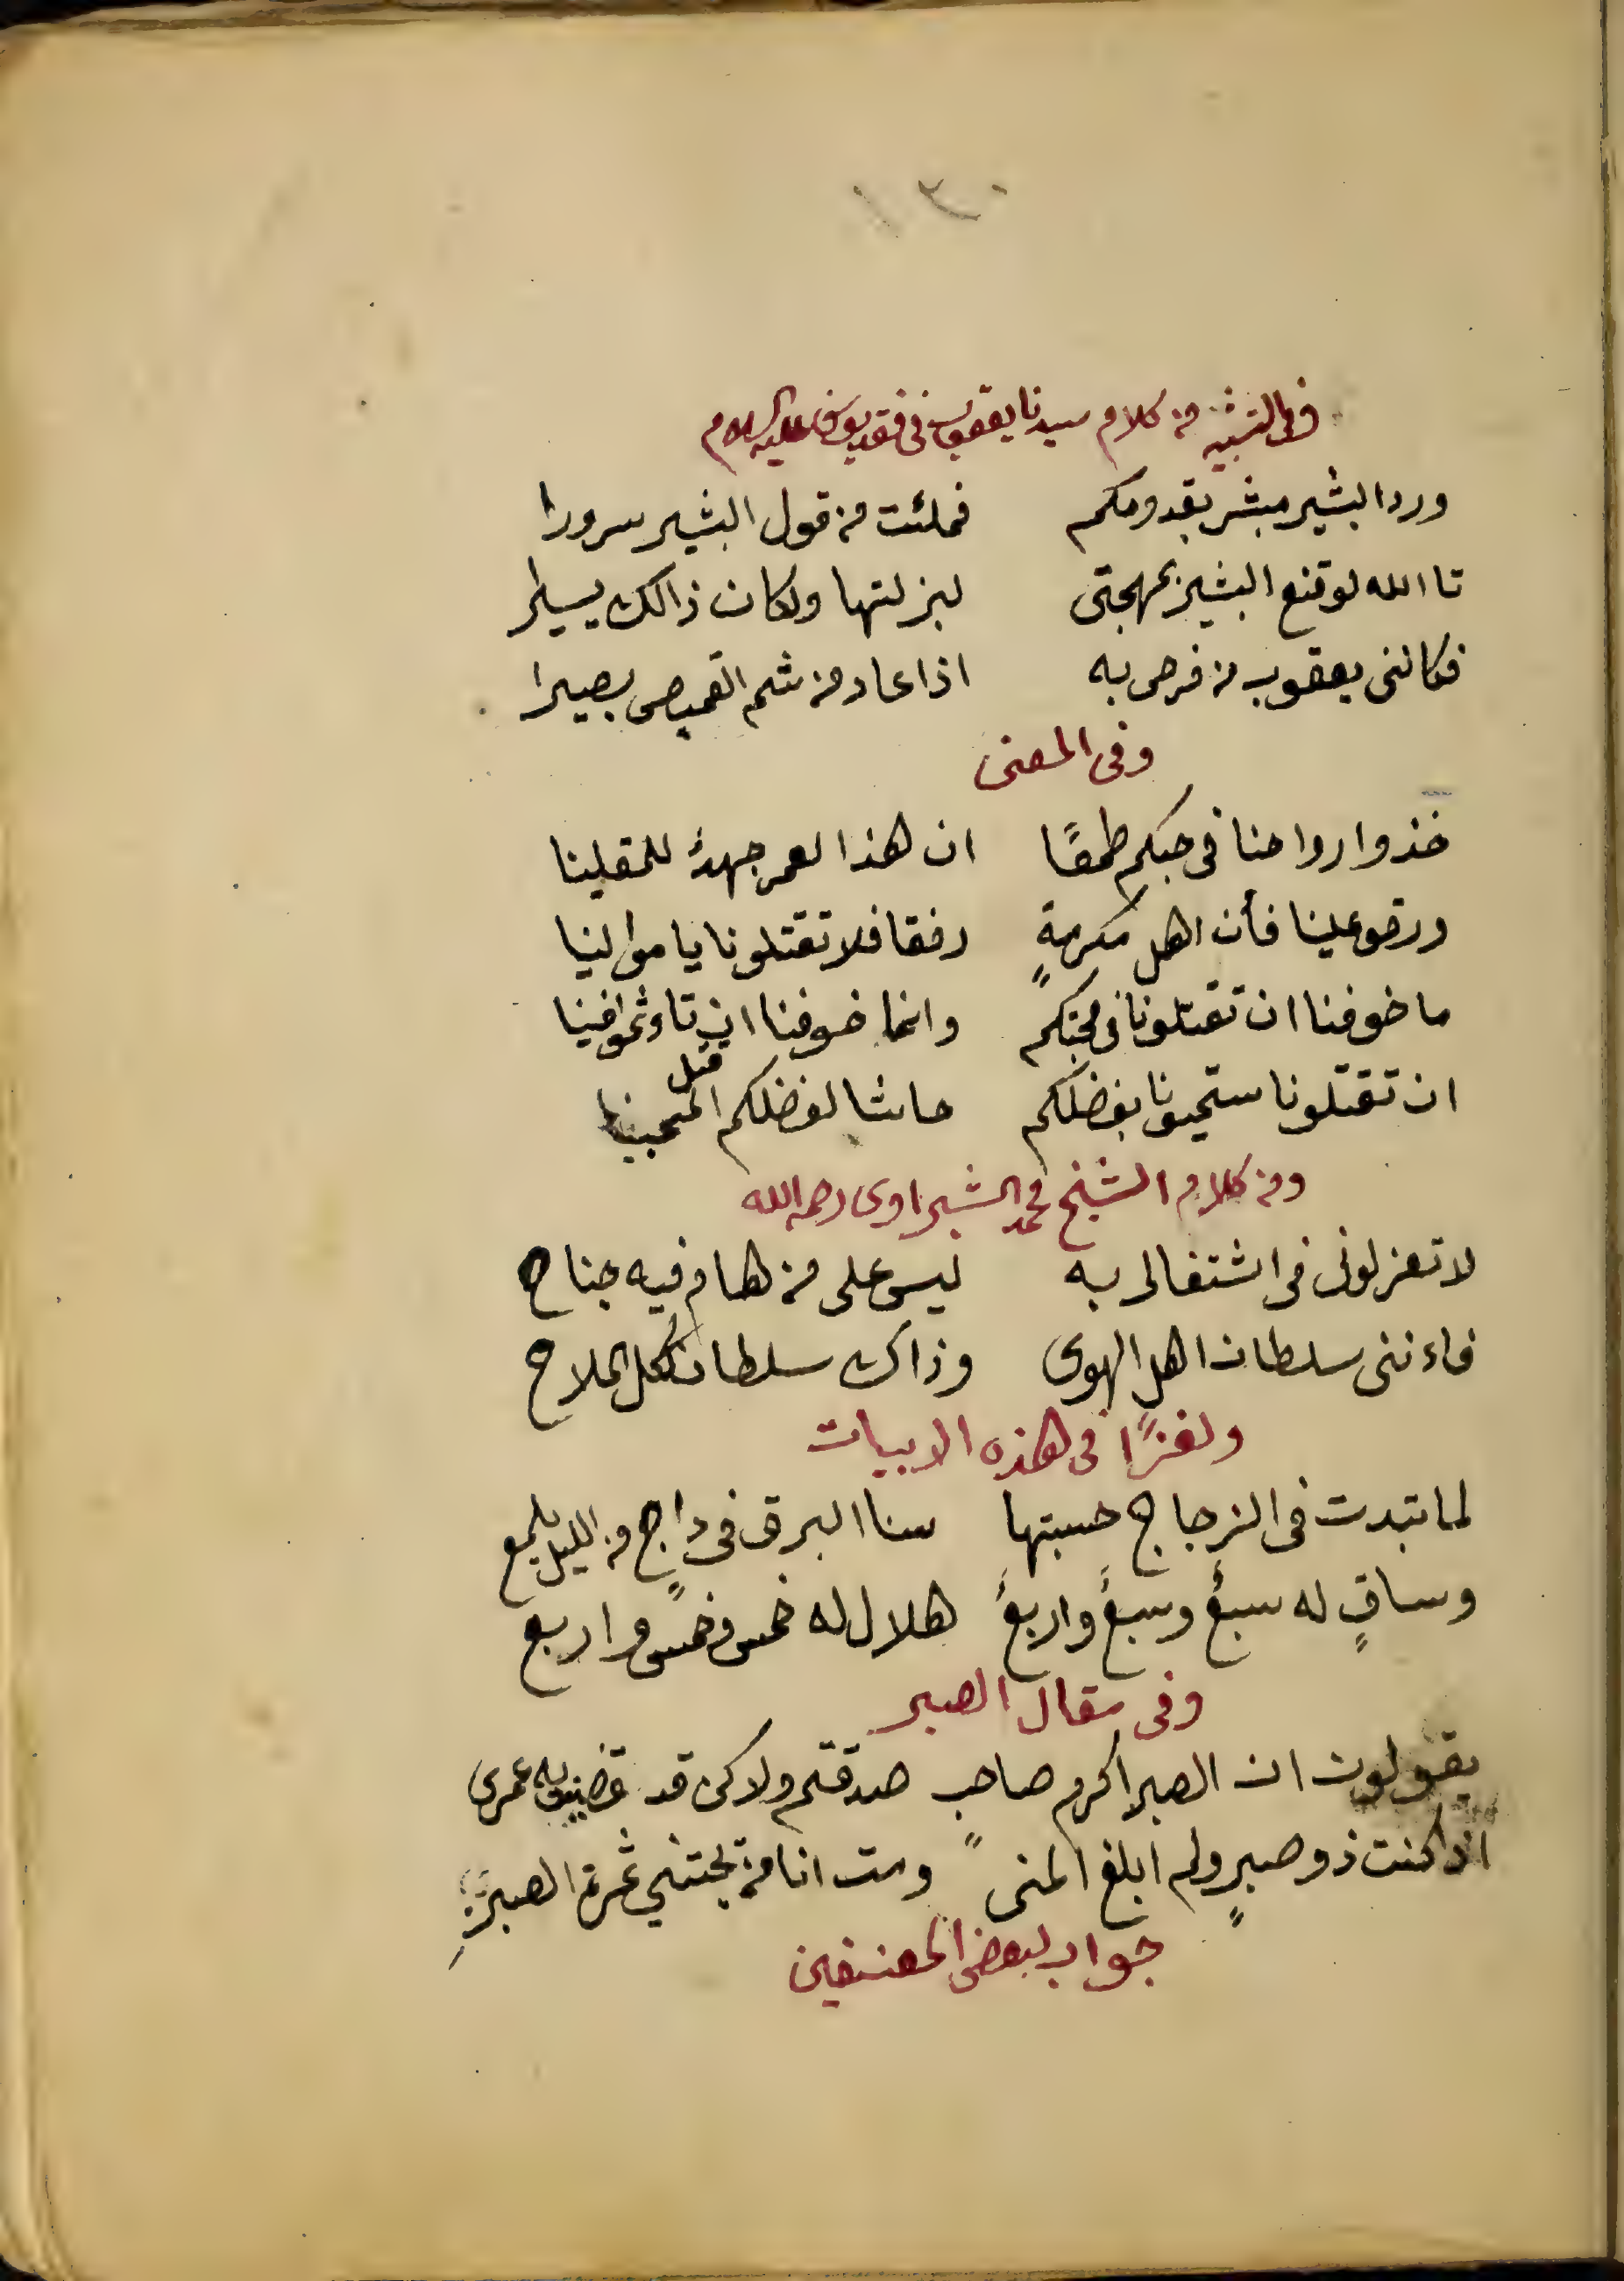 ١٣٠
وفى التشبيه من كلام سيدنا يعقوب فى فقد يوسف عليه السلام
ورد البشير مبشر بقدومكم فملئت من قول البشير سرورا
تا الله لو قنع البشير بمهجتى لبزلتها ولكان ذالك يسيرا
فكاننى يعقوب من فرحى به اذا عاد من شم القميص بصيرا
وفى المعنى
خذوا ارواحنا فى حبكم طمعًا ان هذا لعمر جهدُ للمقلينا
ورقو علينا فأن اهل مكرمةٍ رفقا فلا تقتلونا يا موالنيا
ما خوفنا ان تقتلونا فى محبتكم وانما خوفنا ان تاءثموا فينا
ان تقتلونا ستحيونا بفضلكم حاشا لفضلكم قتل المحبينا
ومن كلام الشيخ محمد الشبراوى رحمه الله
لا تعزلونى فى اشتغالى به ليس على من هام فيه جناح
فاءننى سلطان اهل الهوى وزاك سلطان لكل الملاح
ولغزًا فى هذه الابيات
لما تبدت فى الزجاج حسبتها سنا البرق فى داجٍ من الليل يلمع
وساقٍ له سبعُ وسبعُ واربعُ هلال له خمس وخمس واربع
وفى مقال الصبر
يقولون ان الصبر اكرم صاحب صدقتم ولاكن قد قضيت به عمرى
اذا كنت ذو صبرٍ ولم ابلغ المنى ومت انا من يجتنى ثمرة الصبرِ
جواب لبعض المصنفين